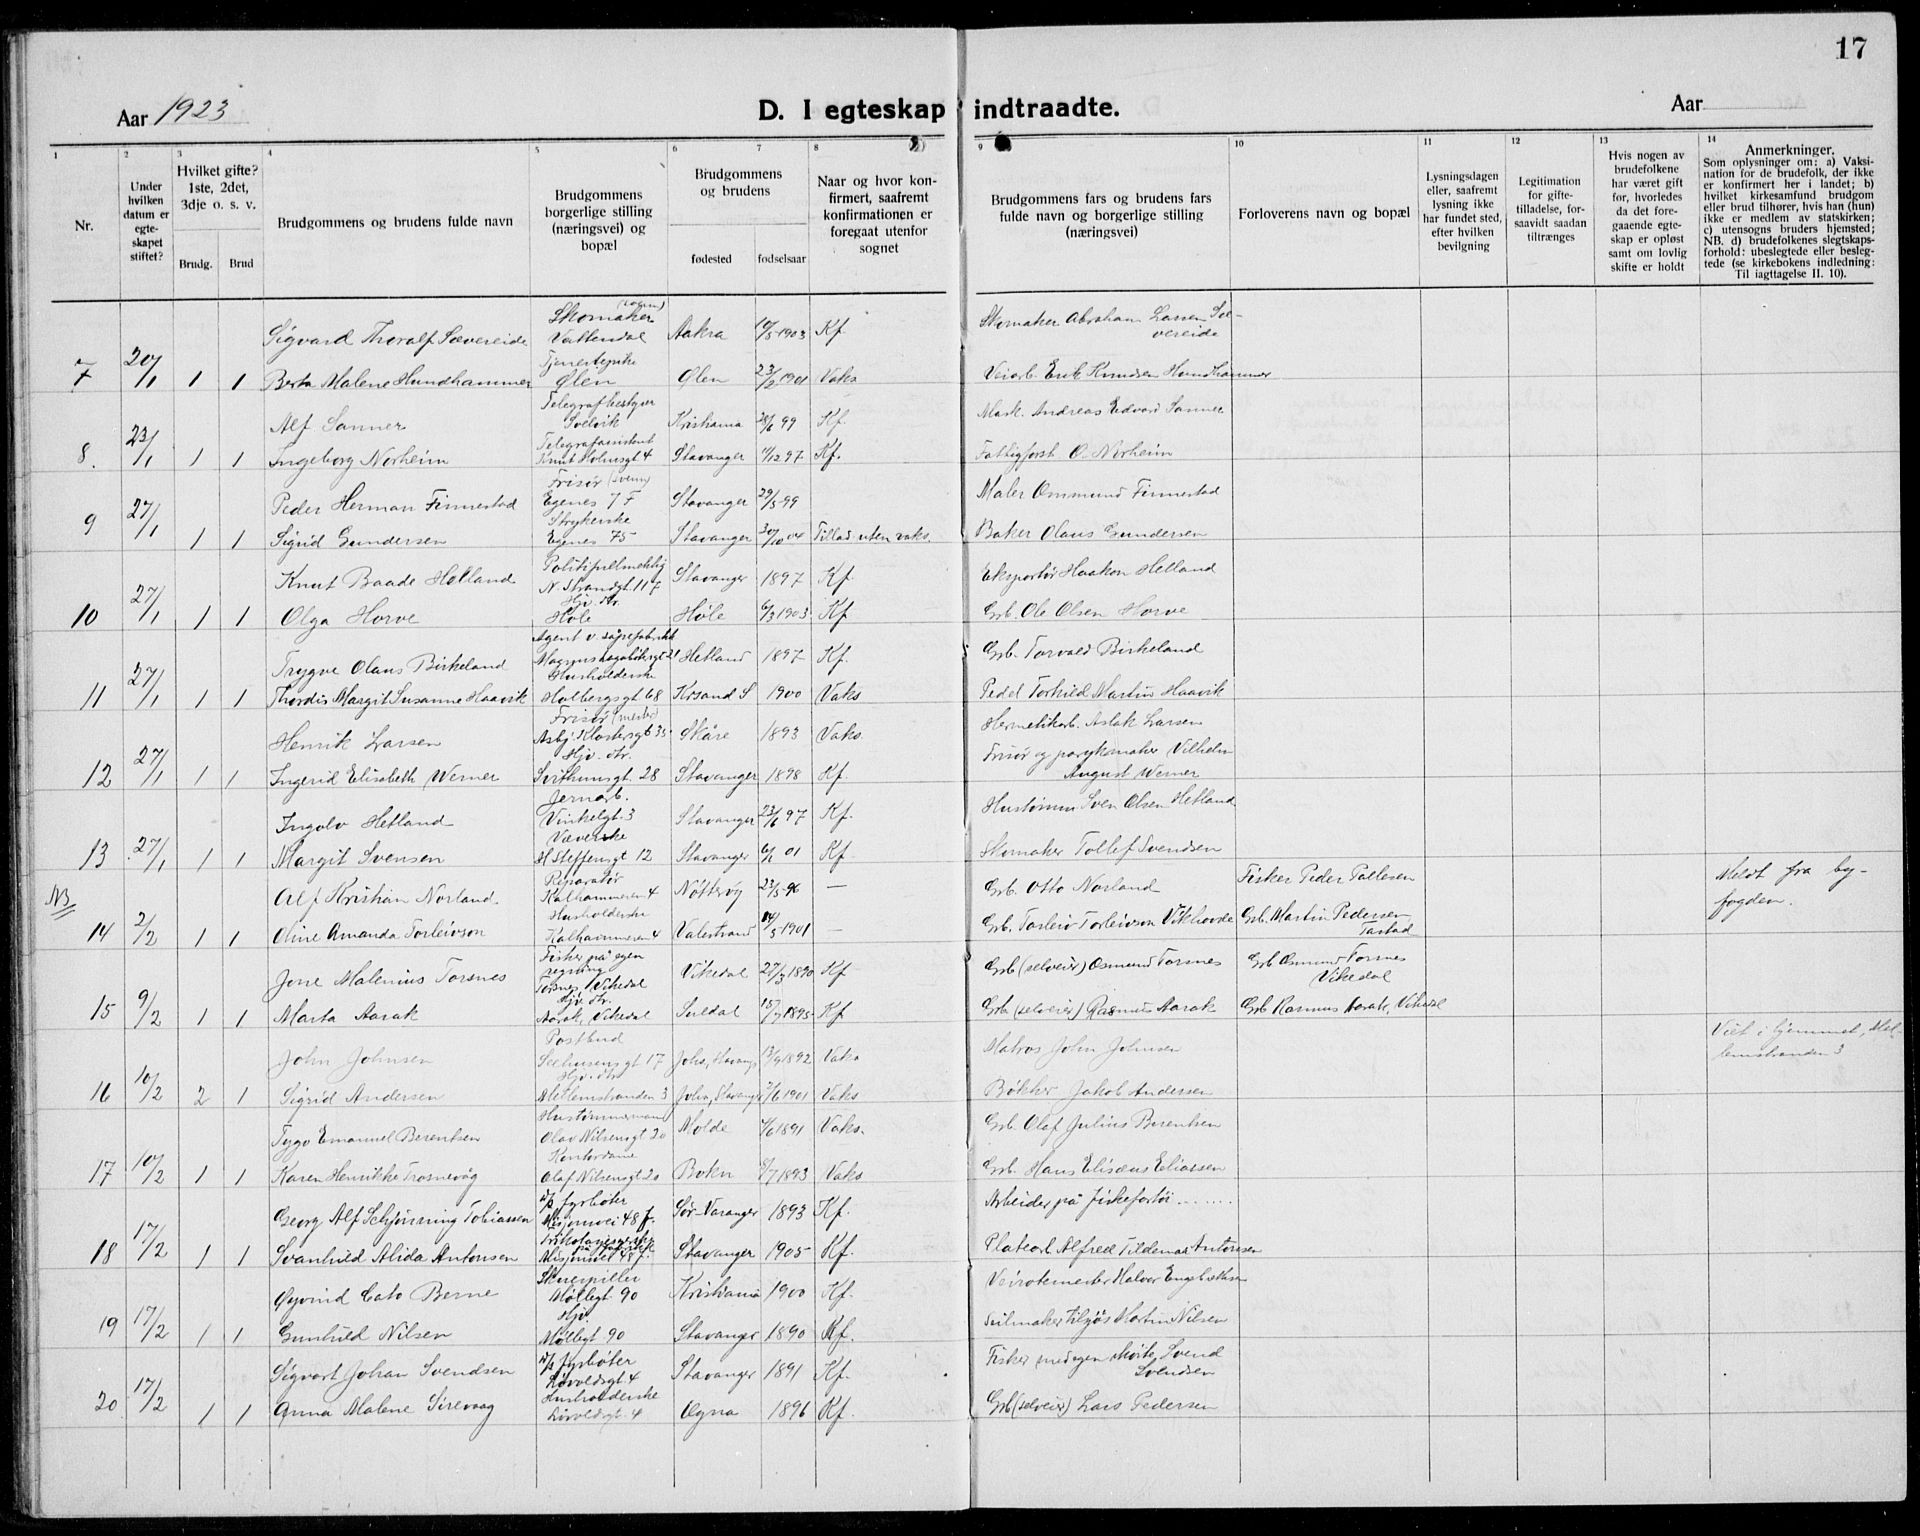 17
Aar 1923
D. I egteskap indtraadte.
Aar
1 2 3 4 5 6 7 8 9 10 11 12 13 14
Nr.
Under hvilken datum er egteskapet stiftet?
Hvilket gifte? 1ste, 2det, 3dje o. s. v.
Brudg. Brud
Brudgommens og brudens fulde navn
Brudgommens borgerlige stilling (næringsvei) og bopæl
Brudgommens og brudens
fødested fødselsaar
Naar og hvor konfirmert, saafremt konfirmationen er foregaat utenfor sognet
Brudgommens fars og brudens fars fulde navn og borgerlige stilling (næringsvei)
Forloverens navn og bopæl
Lysningsdagen eller, saafremt lysning ikke har fundet sted, efter hvilken bevilgning
Legitimation for giftetilladelse, forsaavidt saadan tiltrænges
Hvis nogen av brudefolkene har været gift før, hvorledes da det foregaaende egteskap er opløst samt om lovlig skifte er holdt
Anmerkninger.
Som oplysninger om: a) Vaksination for de brudefolk, der ikke er konfirmert her i landet; b) hvilket kirkesamfund brudgom eller brud tilhører, hvis han (hun) ikke er medlem av statskirken; c) utensogns bruders hjemsted; NB. d) brudefolkenes slegtskapsforhold: ubeslegtede eller beslegtede (se kirkebokens indledning: Til iagttagelse II. 10).
Skomaker
Sigvard Thoralf Sævereide Vattendal Aakra 10/5 1903 Kf. Skomaker Abraham Larsen Sævereide
Tjenestepike
7 20/1 1 1 Berta Malene Hundhammer Ølen Ølen 23/2 1901 Vaks Veiarb. Erik Knudsen Hundhammer
Telegrafbestyrer
Alf Sanner Svelvik Kristiania 28/6 99 Kf. Mask. Andreas Edvard Sanner
Telegrafassistent
8. 23/1 1 1 Ingeborg Norheim Knut Holmsgt 4 Stavanger 11/12 97 Kf. Fattigforst O. Norheim
Frisør (svenn)
Peder Herman Finnestad Egenes 7 F Stavanger 29/5-99 Maler Ommund Finnestad
Strykerske
9 27/1 1 1 Sigrid Gundersen Egenes 75 Stavanger 30/10 04 Tillad. uten vaks. Baker Olaus Gundersen
Politifuldmektig
Knut Baade Helland N. Strandgt. 117 Stavanger 1897 Kf. Eksportør Haakon Helland
Hjv. dtr.
10 27/1 1 1 Olga Horve Høle Høle 6/3 1903 Kf Grb. Ole Olsen Horve
Agent v. såpefabrikk
Trygve Olaus Birkeland Magnus Lagabøtersgt 21 Hetland 1897 Kf. Grb. Torvald Birkeland
Husholderske
11 27/1 1 1 Thordis Margit Susanne Haavik Holbergsgt 68 Krsand S 1900 Vaks Pedel Torkild Martin Haavik
Frisør (mester)
Henrik Larsen Asbj. Klostersgt 35 Skåre 1893 Vaks. Hermetikarb. Aslak Larsen
Hjv. dtr.
12 27/1 1 1 Ingerid Elisabeth Werner Svithunsgt. 28 Stavanger 1898 Kf. Frisør og parykmaker Vilhelm August Werner
Jernarb.
Ingolv Hetland Vinkelgt 3 Stavanger 23/6 97 Kf. Hustømm Sven Olsen Hetland
Væverske
13 27/1 1 1 Margit Svensen H Steffensgt 12 Stavanger 6/1 01 Kf Skomaker Tollef Svendsen
NB
Reparatør
Alf Kristian Norland Kalhammeren 4 Nøtterøy 23/5-96 — Grb. Otto Norland Fisker Peder Pallesen Meldt fra byfogden.
Husholderske
14 2/2 1 1 Oline Amanda Torleivson Kalhammeren 4 Valestrand 14/5 1901 — Grb. Torleiv Torleivson Vikhovde Grb. Martin Pedersen Tastad
Fisker på egen regning
Jone Malenius Torsnes Torsnes, Vikedal Vikedal 27/3 1890 Kf Grb (selveier) Osmund Torsnes Grb Osmund Torsnes Vikedal
Hjv. dtr.
15 9/2 1 1 Marta Aarak Aarak, Vikedal Suldal 15/7 1895 Kf Grb (selveier) Rasmus Aarak Grb Rasmus Aarak, Vikedal
Postbud
John Johnsen Seehusensgt 17 Joh., Stavang. 13/9 1892 Vaks Matros John Johnsen Viet i hjemmet, Mellemstranden 3
Hjv. dtr
16 10/2 2 1 Sigrid Andersen Mellemstranden 3 Joh., Stavanger 2/6 1901 Vaks Bøkker Jakob Andersen
Hustømmermand
Tygo Emanuel Berentsen Olav Nilsensgt 20 Molde 4/6 1891 Vaks. Grb. Olaf Julius Berentsen
Kontordame
17 10/2 1 1 Karen Henrikke Trosnevåg Olaf Nilsensgt 20 Bokn 8/7 1893 Vaks Grb. Hans Elisæus Eliassen
d/s fyrbøter
Georg Alf Schjønning Tobiassen Misjonsvei 48 f. Sør-Varanger 1893 Kf. Arbeider på fiskefortøi ........
18 17/2 1 1 Svanhild Alida Antonsen Misjonsvei 48 f. Stavanger 1905 Kf. Platearb Alfred Tildemar Antonsen
Skuespiller
Øyvind Cato Berne Møllegt 90 Kristiania 1900 Kf. Veirotemester Halvor Engebretsen
Hjv.
19 17/2 1 1 Gunhild Nilsen Møllegt 90 Stavanger 1890 Kf. Seilmaker Tiljøs Martin Nilsen
d/s fyrbøter
Sigvart Johan Svendsen Løvoldsgt. 4 Stavanger 1891 Kf. Fisker med egen skøite, Svend Svendsen
Husholderske
20 17/2 1 1 Anna Malene Sirevaag Løvoldsgt. 4 Ogna 1896 Kf. Grb (selveier) Lars Pedersen